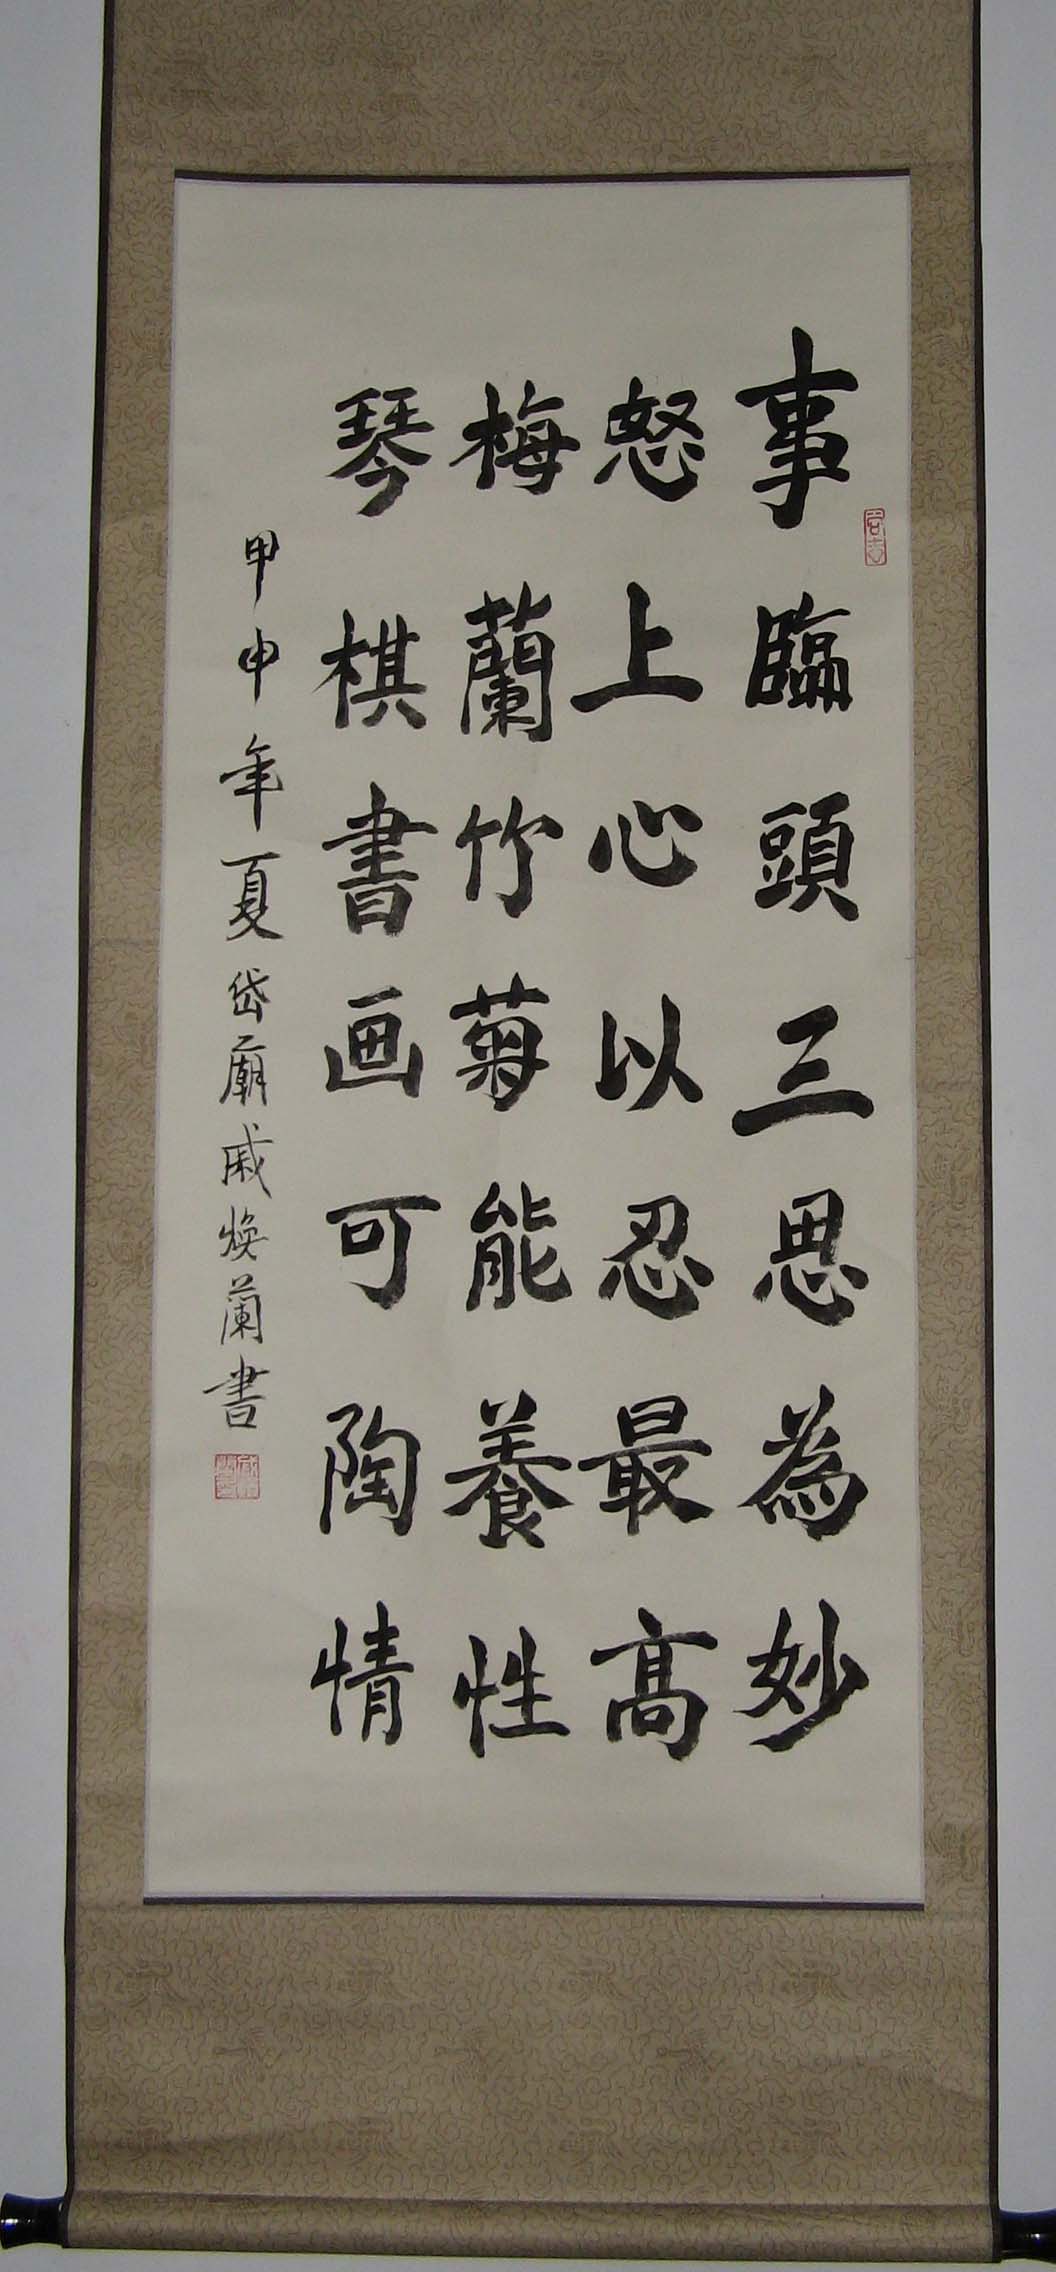 事臨頭三思為妙
怒上心以忍最高
梅蘭竹菊能養性
琴棋書画可陶情
甲申年夏岱廟戚焕蘭書